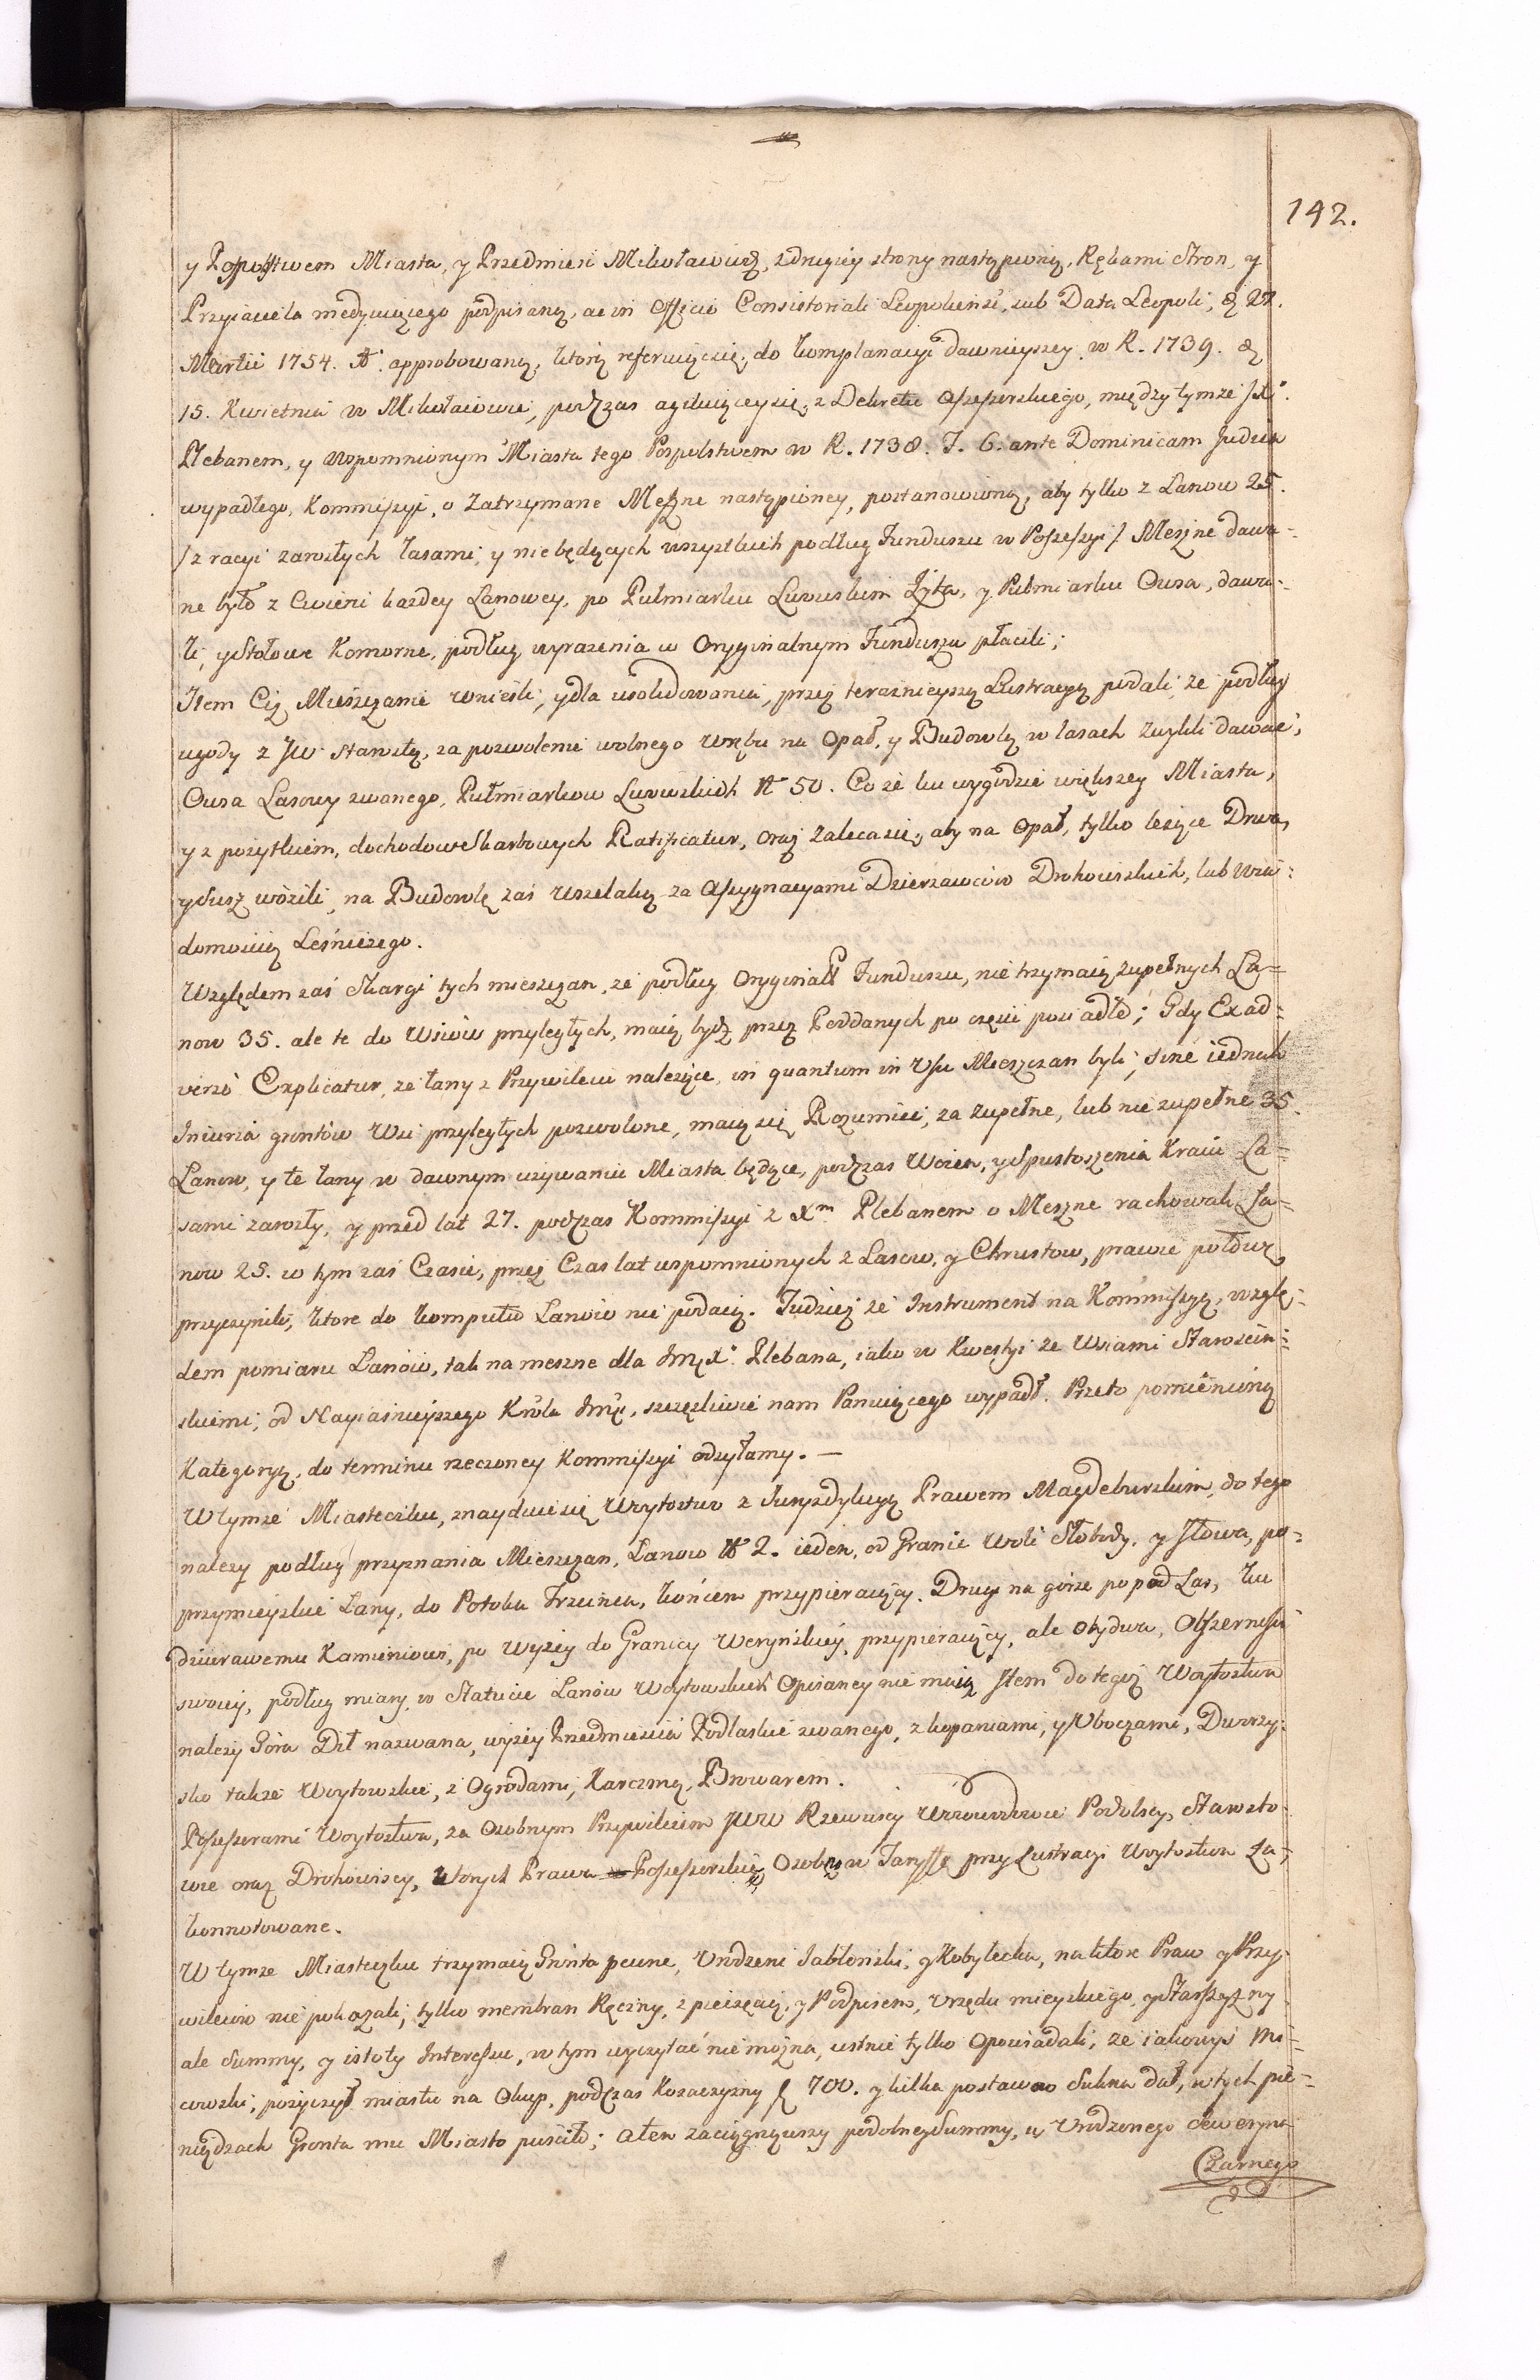 142.
y Pospolstwem Miasta, y Przedmieści Mikołaiowa, z drugiey strony nastąpioną, Rękami Stron, y
Przyiaciela medyuiącego podpisaną, ac in Officio Consistoriali Leopoliensi, sub Data Leopoli, d. 27.
Martii 1754. A. approbowaną, którą referuiąc się, do komplanacyi dawnieyszey w R. 1739. d.
15. Kwietnia w Mikołaiowie, podczas agituiącey się, z Dekretu Assessorskiego, między tymże JX.
Plebanem, y wspomnionym Miasta tego Pospolstwem w R. 1738. F. 6. ante Dominicam Judica
wypadłego, Kommissyi, o zatrzymane Meszne nastąpioney, postanowiono, aby tylko z Lanow 25.
/z racyi zarosłych lasami, y nie będących wszystkich podług Funduszu w Possessyi/ Meszne dawa-
ne było z Cwierci każdey Lanowey, po Pułmiarku Lwowskim Żyta, y Pułmiarku Owsa, dawa-
li, y Stołowe Komorne, podług wyrażenia w Oryginalnym Funduszu płacili;
Item Ciż Mieszczanie wnieśli, y dla uSolidowania, przez teraźnieyszą Lustracyą podali, że podług
ugody z JW Starostą, za pozwolenie wolnego wrębu na Opał, y Budowlą w lasach zwykli dawać,
Owsa Lasowy zwanego, Pułmiarkow Lwowskich N 50. Co że ku wygodzie większey Miasta,
y z pożytkiem, dochodow Skarbowych Ratificatur, oraz zaleca się, aby na Opał, tylko leżące Drwa,
y Susz wozili, na Budowlę zaś wszelaką za Assygnacyami Dzierzawców Drohowskich, lub wia-
domością Leśniczego.
Względem zaś Skargi tych mieszczan, że podług Oryginału Funduszu, nie trzymaią zupełnych La-
now 35. ale te do Wsiow przyległych, maią bydź przez Poddanych po części posiadłe; Gdy Ex ad-
verso Explicatur, że łany z Przywileiu należące, in quantum in Usu Mieszczan byli, sine iednak
Iniuria gruntów Wsi przyległych pozwolone, maią się Rozumieć, za zupełne, lub nie zupełne 35.
Lanow, y te łany w dawnym używaniu Miasta będące, podczas Woien, y Spustoszenia Kraiu La-
sami zarosły, y przed lat 27. podczas Kommissyi z Xm Plebanem o Meszne rachowali La-
now 25. w tym zaś Czasie, przez Czas lat wspomnionych z Lasow, y Chrustow, prawie połowę
przyczynili, ktore do komputu Lanów nie podaią. Tudzież że Instrument na Kommissyą, wzglę-
dem pomiaru Lanów, tak na meszne dla JmX. Plebana, iako w Kwestyi ze Wsiami Staroscin-
skiemi, od Nayiaśnieyszego Króla Jmći, szczęśliwie nam Panuiącego wypadł. Przeto pomienioną
Kategoryą, do terminu rzeczoney Kommissyi odsyłamy. —
W tymże Miasteczku, znayduie się Woytostwo z Juryzdykcyą Prawem Magdeburskim, do tego
należy podług przyznania Mieszczan, Lanow N 2. ieden, od Granic Woli Słobody, y Iłowa, po-
przymieyskie Lany, do Potoka Trzcinca, końcem przypieraiący. Drugi na górze po pod Las, ku
dziurawemu Kamieniowi, po wyżey do Granicy Weryńskiey, przypieraiący, ale obydwa, Obszerności
swoiey, podług miary w Statucie Lanów Woytowskich Opisaney nie maią Item do tegoż Woytostwa
należy Góra Dił nazwana, wyżey Przedmieścia Podlaskie zwanego, z kopaniami, y Uboczami, Dworzy-
sko także Woytowskie, z Ogrodami, Karczmą, Browarem.
Possessorami Woytostwa, za Osobnym Przywileiem JWW Rzewuscy Woiewodowie Podolscy, Starosto-
wie oraz Drohowscy, ktorych Prawa Possessorskie Osobno w Taryffę przy Lustracyi Woytostwa za-
konnotowane.
W tymże Miasteczku trzymaią Gronta pewne, Urodzeni Jabłonski, y Kobylecka, na które Praw y Przy-
wileiow nie pokazali, tylko membran Ręczny, z pieczęcią, y Podpisem, Urzędu mieyskiego, y Starszyzny
ale Summy, y istoty Interessu, w tym wyczytać nie można, ustnie tylko Opowiadali, że iakowyś Mi-
cowski, pożyczył miastu na Okup, podczas Kozaczyzny f 700. y kilka postawow Sukna dał, w tych pie-
niądzach Gronta mu Miasto puściło; a ten zaciągnąwszy podolney Summy, u Urodzonego Seweryna
Czarnego